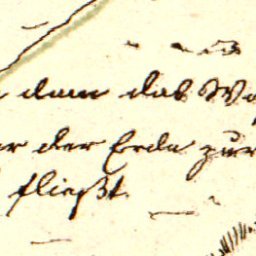 dann das Wa
der Erde zur
fließt.